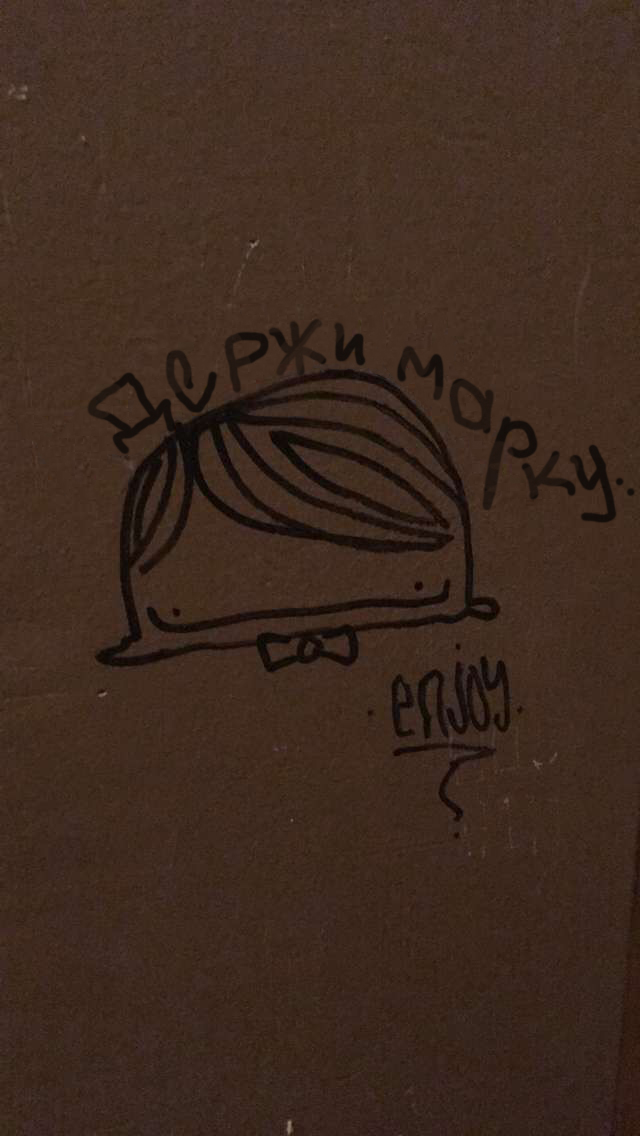 Держи марку..
.enjoy.